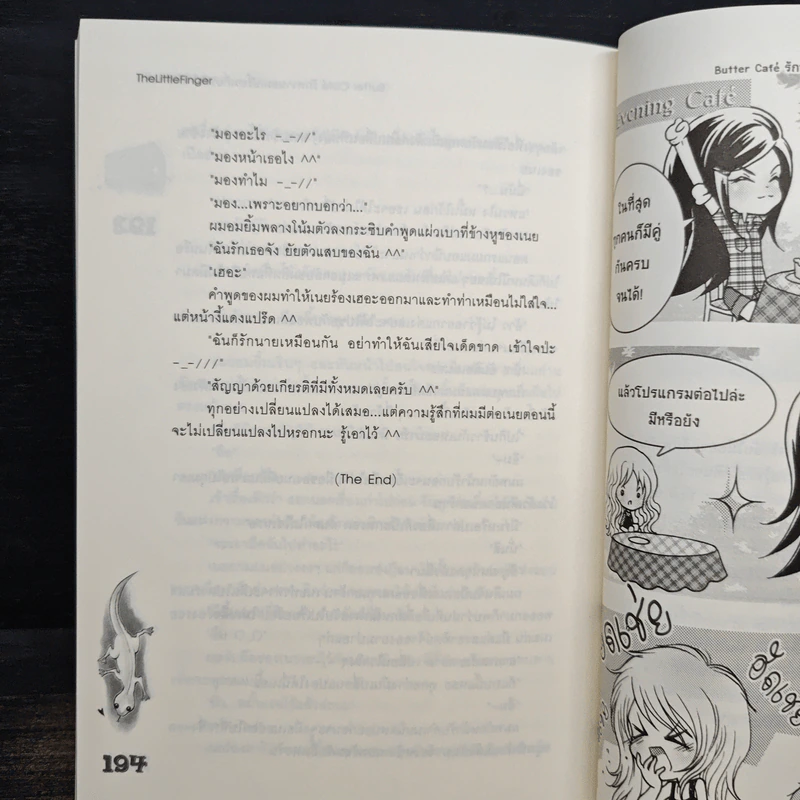 TheLittleFinger
"มองอะไร -_-//"
"มองหน้าเธอไง ^^"
"มองทำไม -_-//"
"มอง...เพราะอยากบอกว่า..."
ผมอมยิ้มพลางโน้มตัวลงกระซิบคำพูดแผ่วเบาที่ข้างหูของเนย
"ฉันรักเธอจัง ยัยตัวแสบของฉัน ^^"
"เฮอะ"
คำพูดของผมทำให้เนยร้องเฮอะออกมาและทำท่าเหมือนไม่ใส่ใจ...
แต่หน้างี้แดงแปร๊ด ^^
"ฉันก็รักนายเหมือนกัน อย่าทำให้ฉันเสียใจเด็ดขาด เข้าใจปะ
-_-///"
"สัญญาด้วยเกียรติที่มีทั้งหมดเลยครับ ^^"
ทุกอย่างเปลี่ยนแปลงได้เสมอ...แต่ความรู้สึกที่ผมมีต่อเนยตอนนี้
จะไม่เปลี่ยนแปลงไปหรอกนะ รู้เอาไว้ ^^
(The End)
194
Butter Café รัก
Evening Café
ในที่สุด
ทุกคนก็มีคู่
กันครบ
จนได้!
แล้วโปรแกรมต่อไปล่ะ
มีหรือยัง